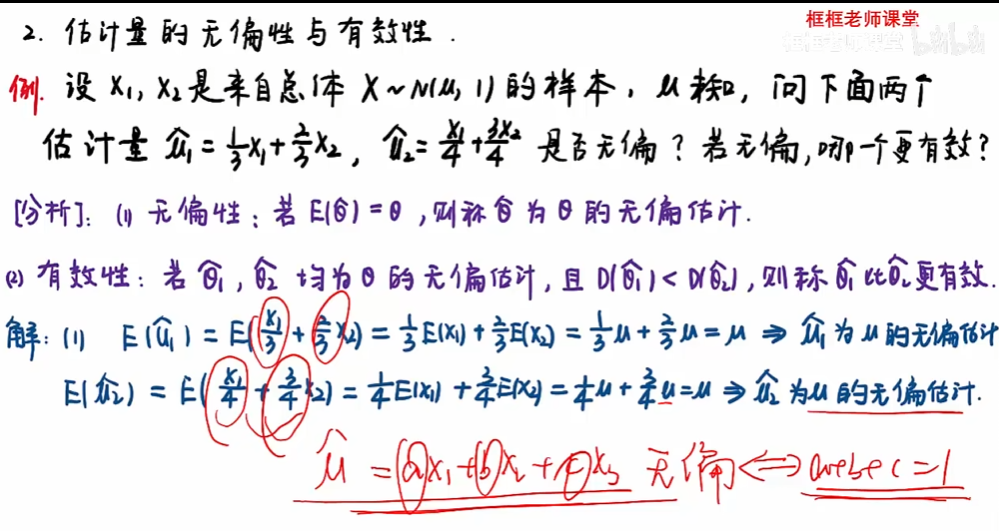 框框老师课堂
2. 估计量的无偏性与有效性.
框框老师课堂 bilibili
例. 设 X₁, X₂ 是来自总体 X ~ N(μ, 1) 的样本, μ未知, 问下面两个
估计量 μ̂₁ = 1/3 X₁ + 2/3 X₂, μ̂₂ = X₁/4 + 3X₂/4 是否无偏? 若无偏, 哪一个更有效?
[分析]: (1) 无偏性: 若 E(θ̂) = θ, 则称 θ̂ 为 θ 的无偏估计.
(2) 有效性: 若 θ̂₁, θ̂₂ 均为 θ 的无偏估计, 且 D(θ̂₁) < D(θ̂₂), 则称 θ̂₁ 比 θ̂₂ 更有效.
解: (1) E(μ̂₁) = E(X₁/3 + 2/3 X₂) = 1/3 E(X₁) + 2/3 E(X₂) = 1/3 μ + 2/3 μ = μ ⇒ μ̂₁ 为 μ 的无偏估计
E(μ̂₂) = E(X₁/4 + 3/4 X₂) = 1/4 E(X₁) + 3/4 E(X₂) = 1/4 μ + 3/4 μ = μ ⇒ μ̂₂ 为 μ 的无偏估计.
μ̂ = aX₁ + bX₂ + cX₃ 无偏 ⇔ a+b+c=1